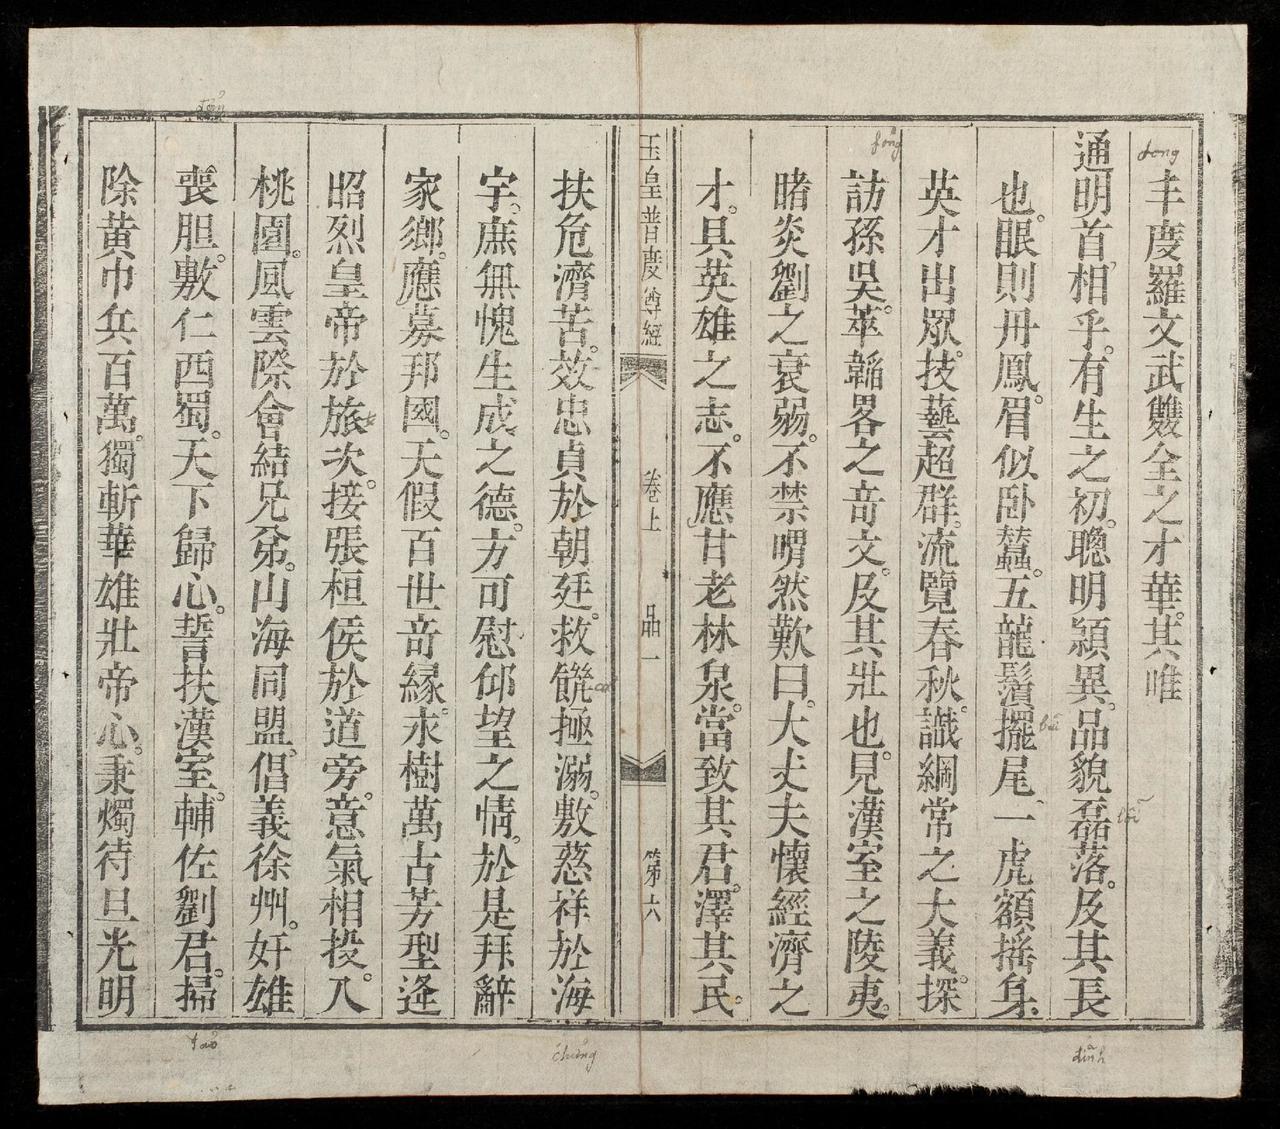 丰度羅文武雙全之才華。其唯
通明首相乎。有生之初。聰明穎異。品貌磊落。及其長
也。眼則丹鳳。眉似卧蠶。五龍鬚擺尾。一虎額摇身。
英才出眾。技藝超群。流覽春秋。識綱常之大義。探
訪孫吳。萃韜畧之竒文。及其壯也。見漢室之陵夷。
睹炎劉之衰弱。不禁喟然歎曰。大丈夫懷經濟之
才。具英雄之志。不應甘老林泉。當致其君。澤其民。
玉皇普度尊經 卷上 品一 第六
扶危濟苦。效忠貞於朝廷。救饑極溺。敷慈祥於海
宇。庶無愧生成之德。方可慰仰望之情。於是拜辭
家鄉。應募邦國。天假百世竒緣。永樹萬古芳型。逢
昭烈皇帝於旅次。接張桓侯於道旁。意氣相投。入
桃園。風雲際會。結兄弟。山海同盟。倡義徐州。奸雄
喪胆。敷仁西蜀。天下歸心。誓扶漢室。輔佐劉君。掃
除黃巾兵百萬。獨斬華雄壯帝心。秉燭待旦光明